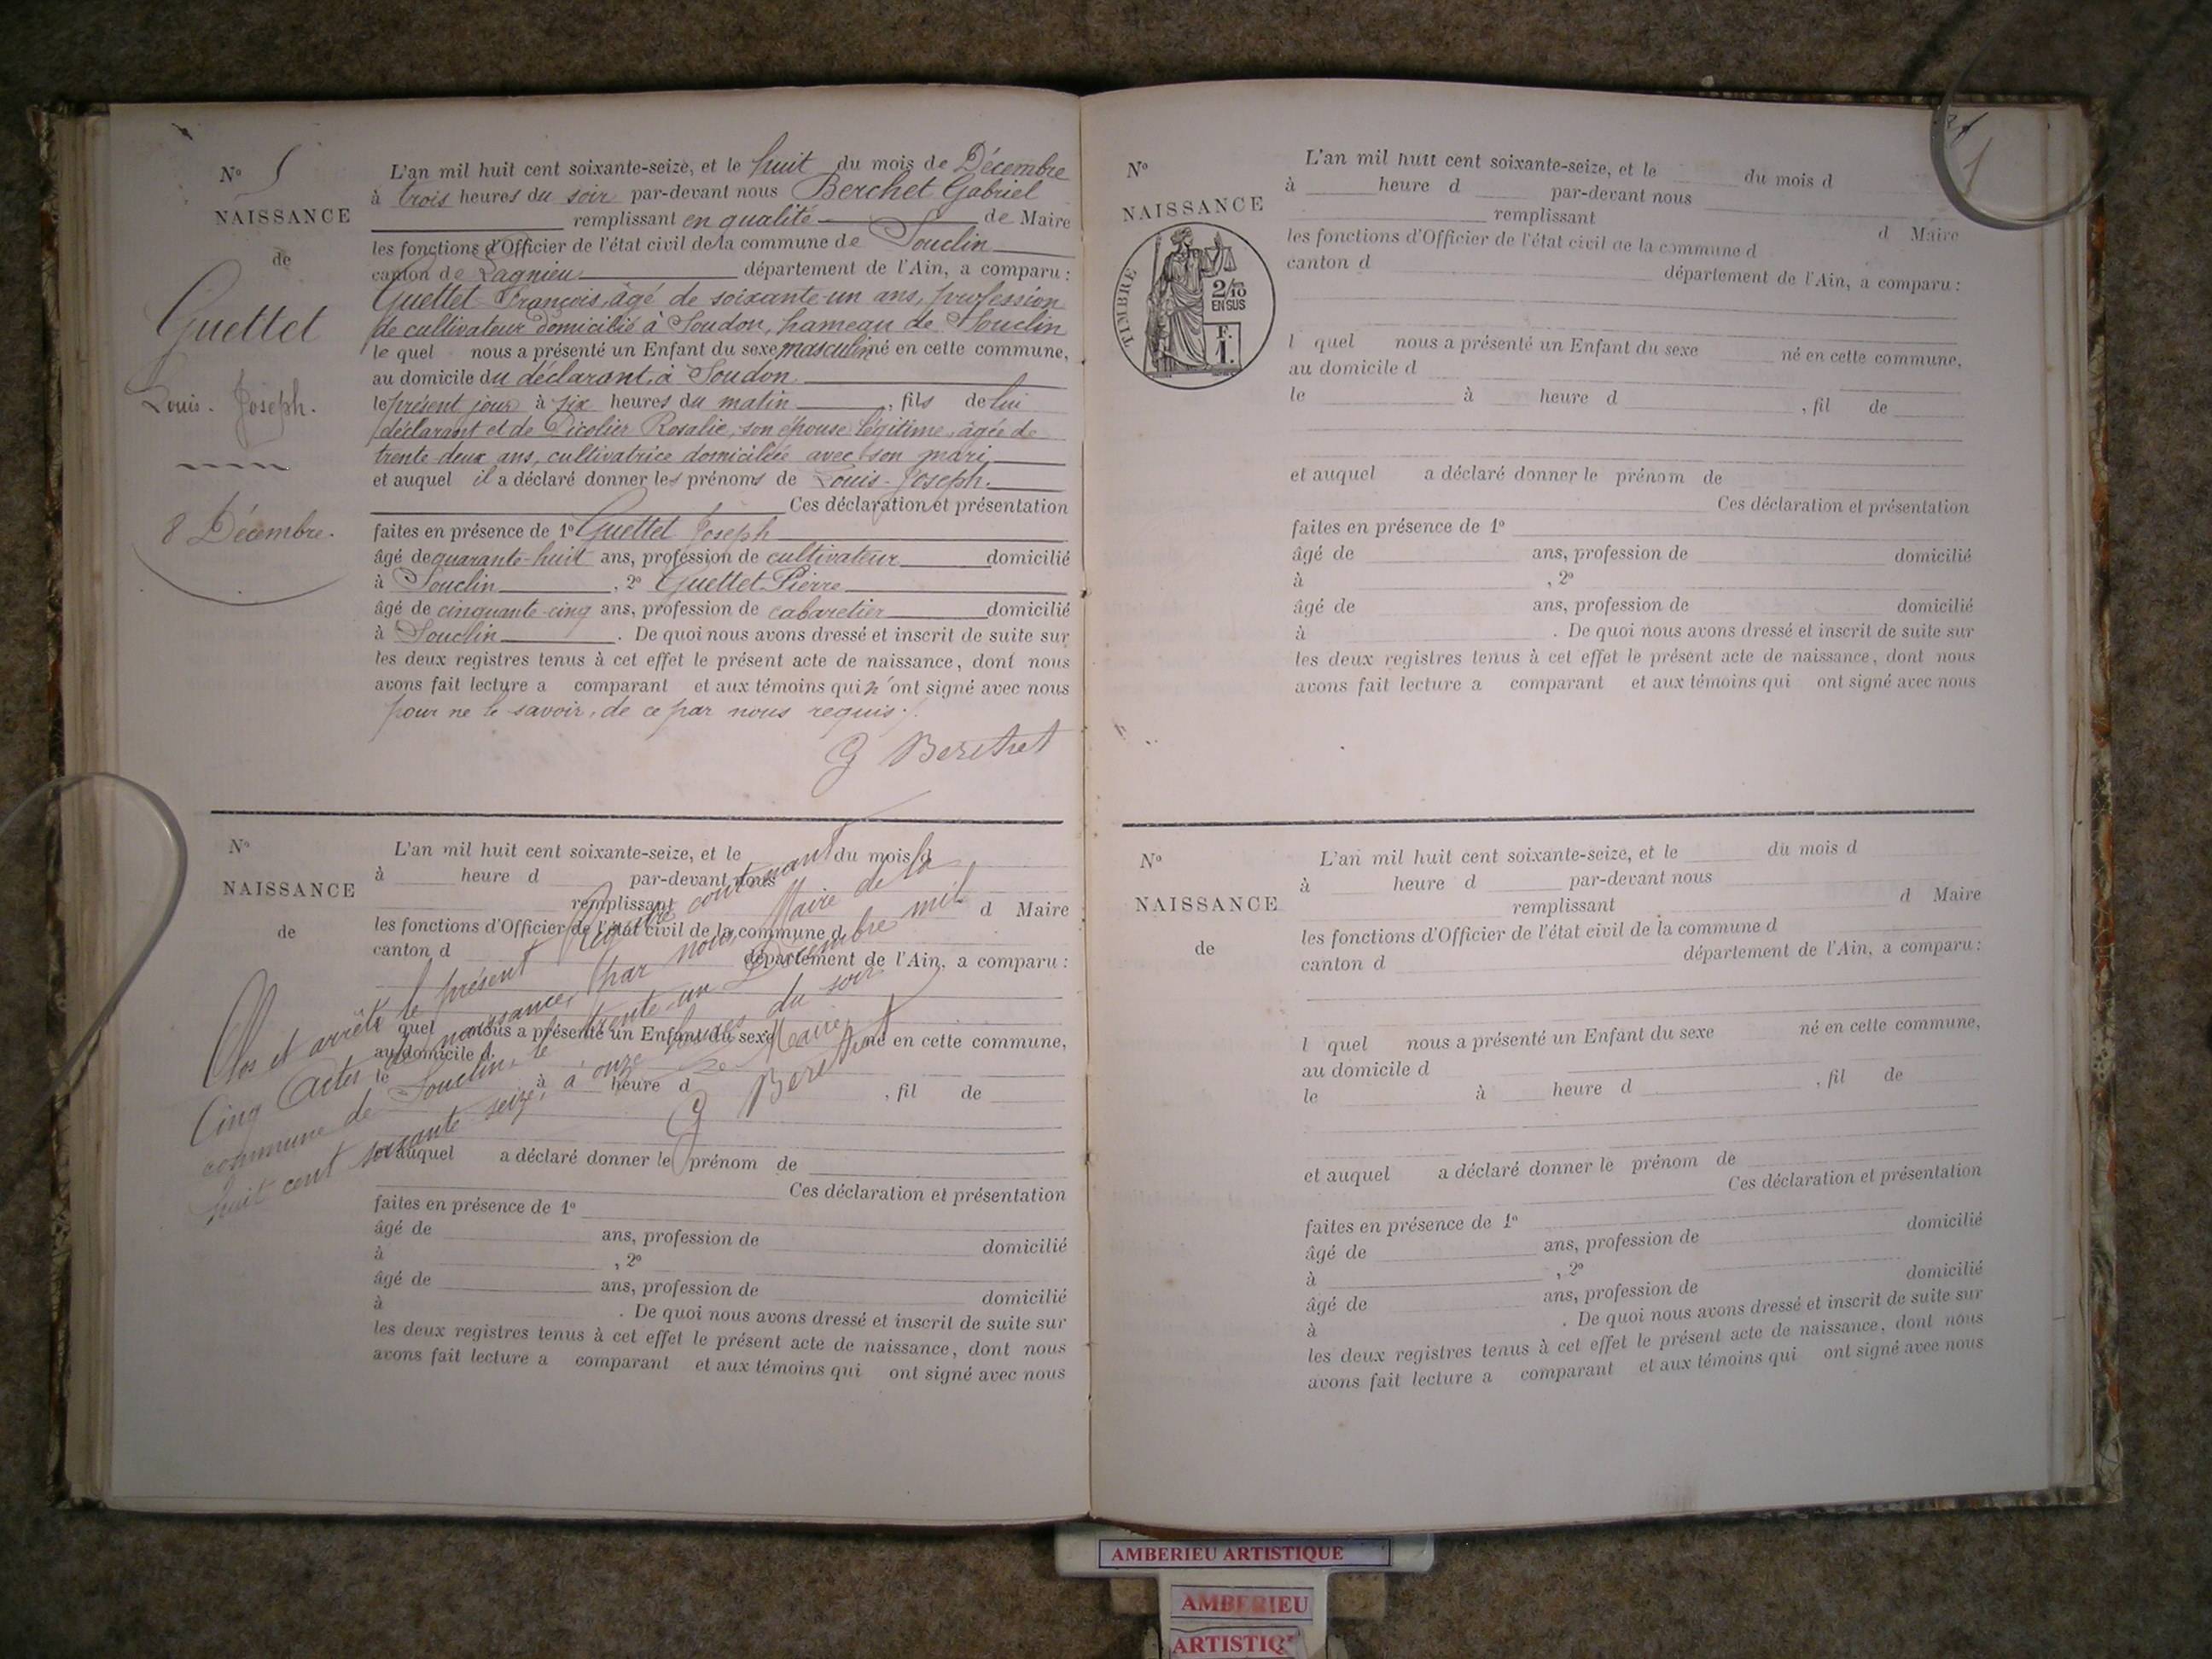 N° 5
NAISSANCE
de
Guettet
Louis-Joseph.
8 Décembre.
L'an mil huit cent soixante-seize, et le huit du mois de Décembre
à trois heures du soir par-devant nous Berchet Gabriel
remplissant en qualité de Maire
les fonctions d'Officier de l'état civil de la commune de Souclin
canton de Lagnieu département de l'Ain, a comparu :
Guettet François, âgé de soixante-un ans, profession
de cultivateur domicilié à Soudon, hameau de Souclin
le quel nous a présenté un Enfant du sexe masculin né en cette commune,
au domicile du déclarant, à Soudon
le présent jour à six heures du matin, fils de lui
déclarant et de Picolier Rosalie, son épouse légitime, âgée de
trente-deux ans, cultivatrice domiciliée avec son mari,
et auquel il a déclaré donner les prénoms de Louis-Joseph.
Ces déclaration et présentation
faites en présence de 1° Guettet Joseph
âgé de quarante-huit ans, profession de cultivateur domicilié
à Souclin, 2° Guettet Pierre
âgé de cinquante-cinq ans, profession de cabaretier domicilié
à Souclin. De quoi nous avons dressé et inscrit de suite sur
les deux registres tenus à cet effet le présent acte de naissance, dont nous
avons fait lecture a comparant et aux témoins qui n'ont signé avec nous
pour ne le savoir, de ce par nous requis.
G Berchet
N°
NAISSANCE
de
L'an mil huit cent soixante-seize, et le du mois d
à heure d par-devant nous
remplissant d Maire
les fonctions d'Officier de l'état civil de la commune d
canton d département de l'Ain, a comparu :
quel nous a présenté un Enfant du sexe né en cette commune,
au domicile d
le à heure d , fil de
et auquel a déclaré donner le prénom de
Ces déclaration et présentation
faites en présence de 1°
âgé de ans, profession de domicilié
à , 2°
âgé de ans, profession de domicilié
à . De quoi nous avons dressé et inscrit de suite sur
les deux registres tenus à cet effet le présent acte de naissance, dont nous
avons fait lecture a comparant et aux témoins qui ont signé avec nous
Clos et arrêté le présent Registre contenant
Cinq Actes de naissances, par nous, Maire de la
commune de Souclin, le trente-un Décembre mil
huit cent soixante seize, à onze heures du soir
Le Maire,
G Berchet
1
N°
NAISSANCE
TIMBRE
2/10
EN SUS
F.
1.
L'an mil huit cent soixante-seize, et le du mois d
à heure d par-devant nous
remplissant d Maire
les fonctions d'Officier de l'état civil de la commune d
canton d département de l'Ain, a comparu :
l quel nous a présenté un Enfant du sexe né en cette commune,
au domicile d
le à heure d , fil de
et auquel a déclaré donner le prénom de
Ces déclaration et présentation
faites en présence de 1°
âgé de ans, profession de domicilié
à , 2°
âgé de ans, profession de domicilié
à . De quoi nous avons dressé et inscrit de suite sur
les deux registres tenus à cet effet le présent acte de naissance, dont nous
avons fait lecture a comparant et aux témoins qui ont signé avec nous
N°
NAISSANCE
de
L'an mil huit cent soixante-seize, et le du mois d
à heure d par-devant nous
remplissant d Maire
les fonctions d'Officier de l'état civil de la commune d
canton d département de l'Ain, a comparu :
l quel nous a présenté un Enfant du sexe né en cette commune,
au domicile d
le à heure d , fil de
et auquel a déclaré donner le prénom de
Ces déclaration et présentation
faites en présence de 1°
âgé de ans, profession de domicilié
à , 2°
âgé de ans, profession de domicilié
à . De quoi nous avons dressé et inscrit de suite sur
les deux registres tenus à cet effet le présent acte de naissance, dont nous
avons fait lecture a comparant et aux témoins qui ont signé avec nous
AMBERIEU ARTISTIQUE
AMBERIEU
ARTISTIQ